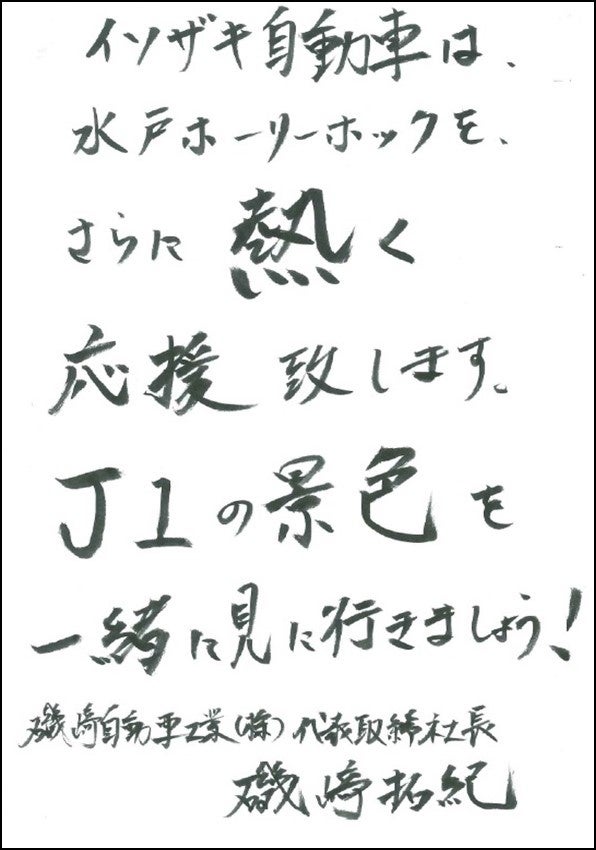 イソザキ自動車は、
水戸ホーリーホックを、
さらに熱く
応援致します。
J1の景色を
一緒に見に行きましょう!
磯﨑自動車工業(株)代表取締役社長
磯﨑拓紀